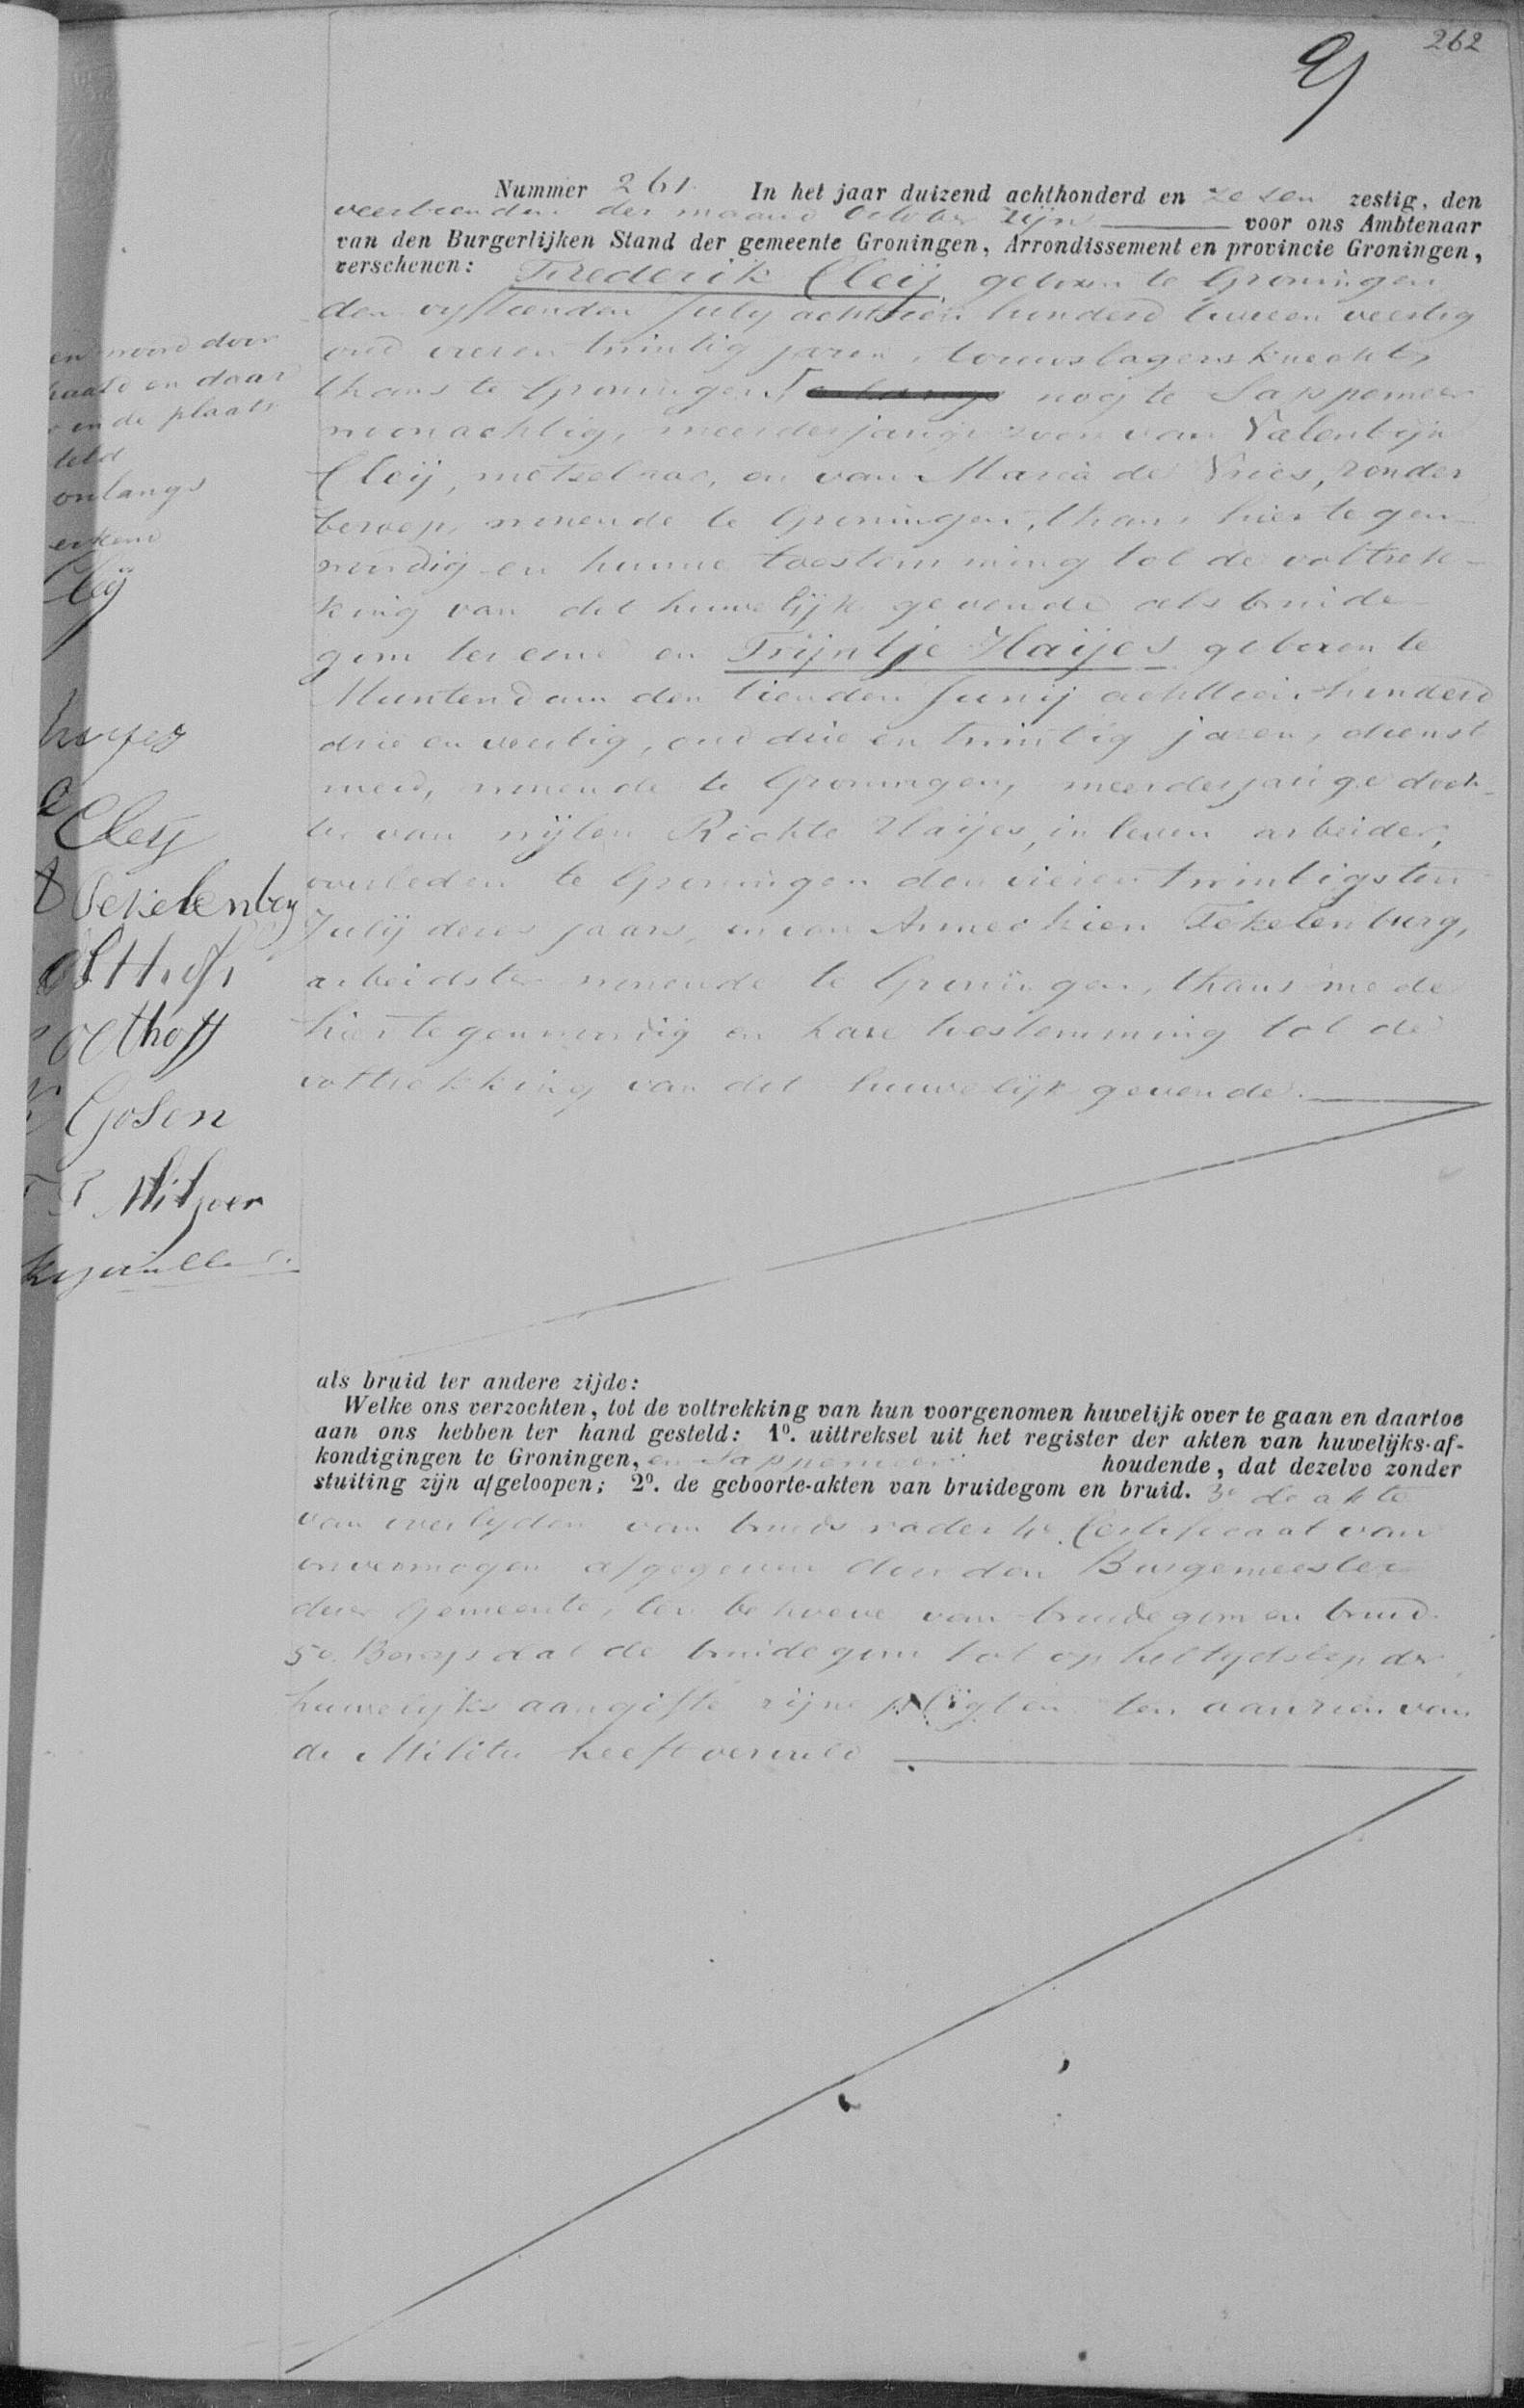 262
Nummer 261. In het jaar duizend achthonderd en zesen zestig, den
veertienden der maand October zijn voor ons Ambtenaar
van den Burgerlijken Stand der gemeente Groningen, Arrondissement en provincie Groningen,
verschenen: Frederik Cleij geboren te Groningen
den vyftienden July achttien honderd tweeen veertig
oud vieren twintig jaren, touwslagersknecht,
thans te Groningen, nog te Sappemeer
woonachtig, meerderjarige zoon van Valentijn
Cleij, metselaar, en van Maria de Vries, zonder
beroep, wonende te Groningen, thans hier tegen
woordig en hunne toestemming tot de voltrek-
king van dit huwelijk gevende als bruide
gom ter eene en Trijntje Haijes geboren te
Muntendam den tienden Junij achttien honderd
drie en veertig, oud drie en twintig jaren, dienst
meid, wonende te Groningen, meerderjarige doch-
ter van wijlen Richte Haijes, in leven arbeider,
overleden te Groningen den vieren twintigsten
Julij dezes jaars, en van Annechien Tekelenburg,
arbeidster wonende te Groningen, thans mede
hier tegenwoordig en hare toestemming tot de
voltrekking van dit huwelijk gevende.
als bruid ter andere zijde:
Welke ons verzochten, tot de voltrekking van hun voorgenomen huwelijk over te gaan en daartoe
aan ons hebben ter hand gesteld: 1º. uittreksel uit het register der akten van huwelijks-af-
kondigingen te Groningen, en Sappemeer houdende, dat dezelve zonder
stuiting zijn afgeloopen; 2º. de geboorte-akten van bruidegom en bruid. 3º de akte
van overlyden van bruids vader 4º. Certificaat van
onvermogen afgegeven door den Burgemeester
dezer Gemeente, ten behoeve van bruidegom en bruid.
5º. Bewys dat de bruidegom tot op het tydstip der
huwelijks aangifte zijne pligten ten aanzien van
de Militie heeft vervuld
en woord door
haald en daar
in de plaats
teld
onlangs
erkend
Cleij
Cleij
Tekelenburg
Olthoff
Gosen